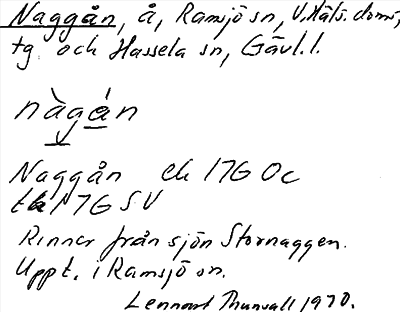 Naggån, å, Ramsjö sn, V. Häls. doms,
tg och Hassela sn, Gävl. l.
nàgån
Naggån ek 17G Oc
tk 17G SV
Rinner från sjön Stornaggen.
Uppt. i Ramsjö sn.
Lennart Thunvall 1970.